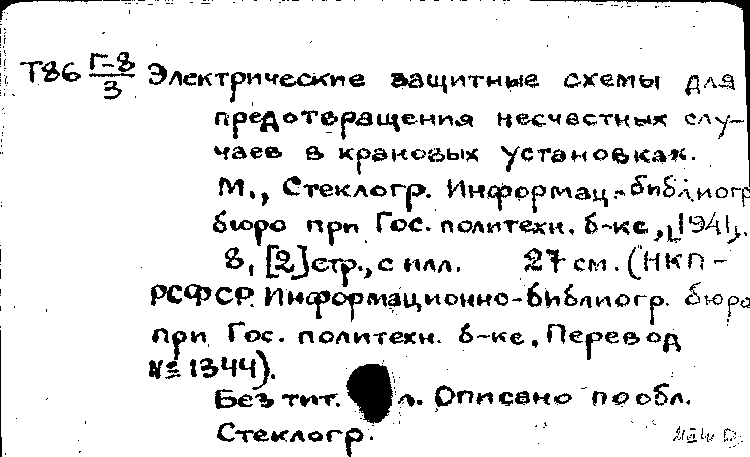 Т86 Г-8/3 Электрические защитные схемы для
предотвращения несчастных слу-
чаев в крановых установках.
М., Стеклогр. Информац.-библиогр.
бюро при Гос. политехн. б-ке, [1941].
8, [2] стр., с илл. 27 см. (НКП-
РСФСР. Информационно-библиогр. бюро
при Гос. политехн. б-ке, Перевод
№ 1344).
Без тит. л. Описано по обл.
Стеклогр.